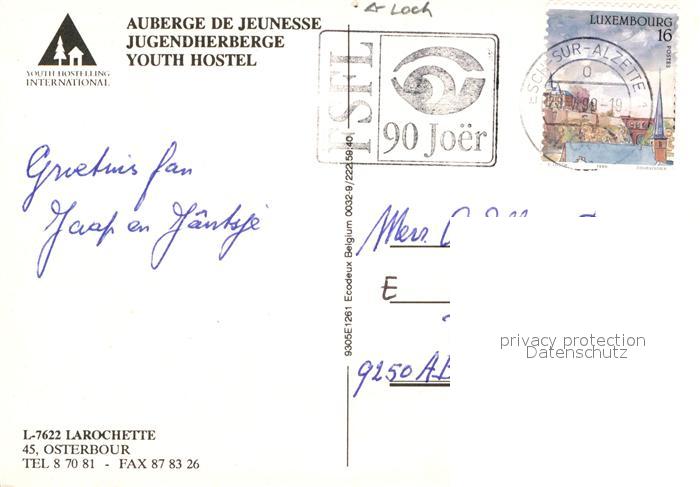 AUBERGE DE JEUNESSE
JUGENDHERBERGE
YOUTH HOSTEL
YOUTH HOSTELLING
INTERNATIONAL
Loch
FSFL
90 Joër
LUXEMBOURG
16
POSTES
ESCH-SUR-ALZETTE
Groetnis fan
Jaap en Jântsje
9305E1261 Ecodeux Belgium 0032-9/222.59.40
Mevr.
E
9250 AB
privacy protection
Datenschutz
L-7622 LAROCHETTE
45, OSTERBOUR
TEL 8 70 81 - FAX 87 83 26